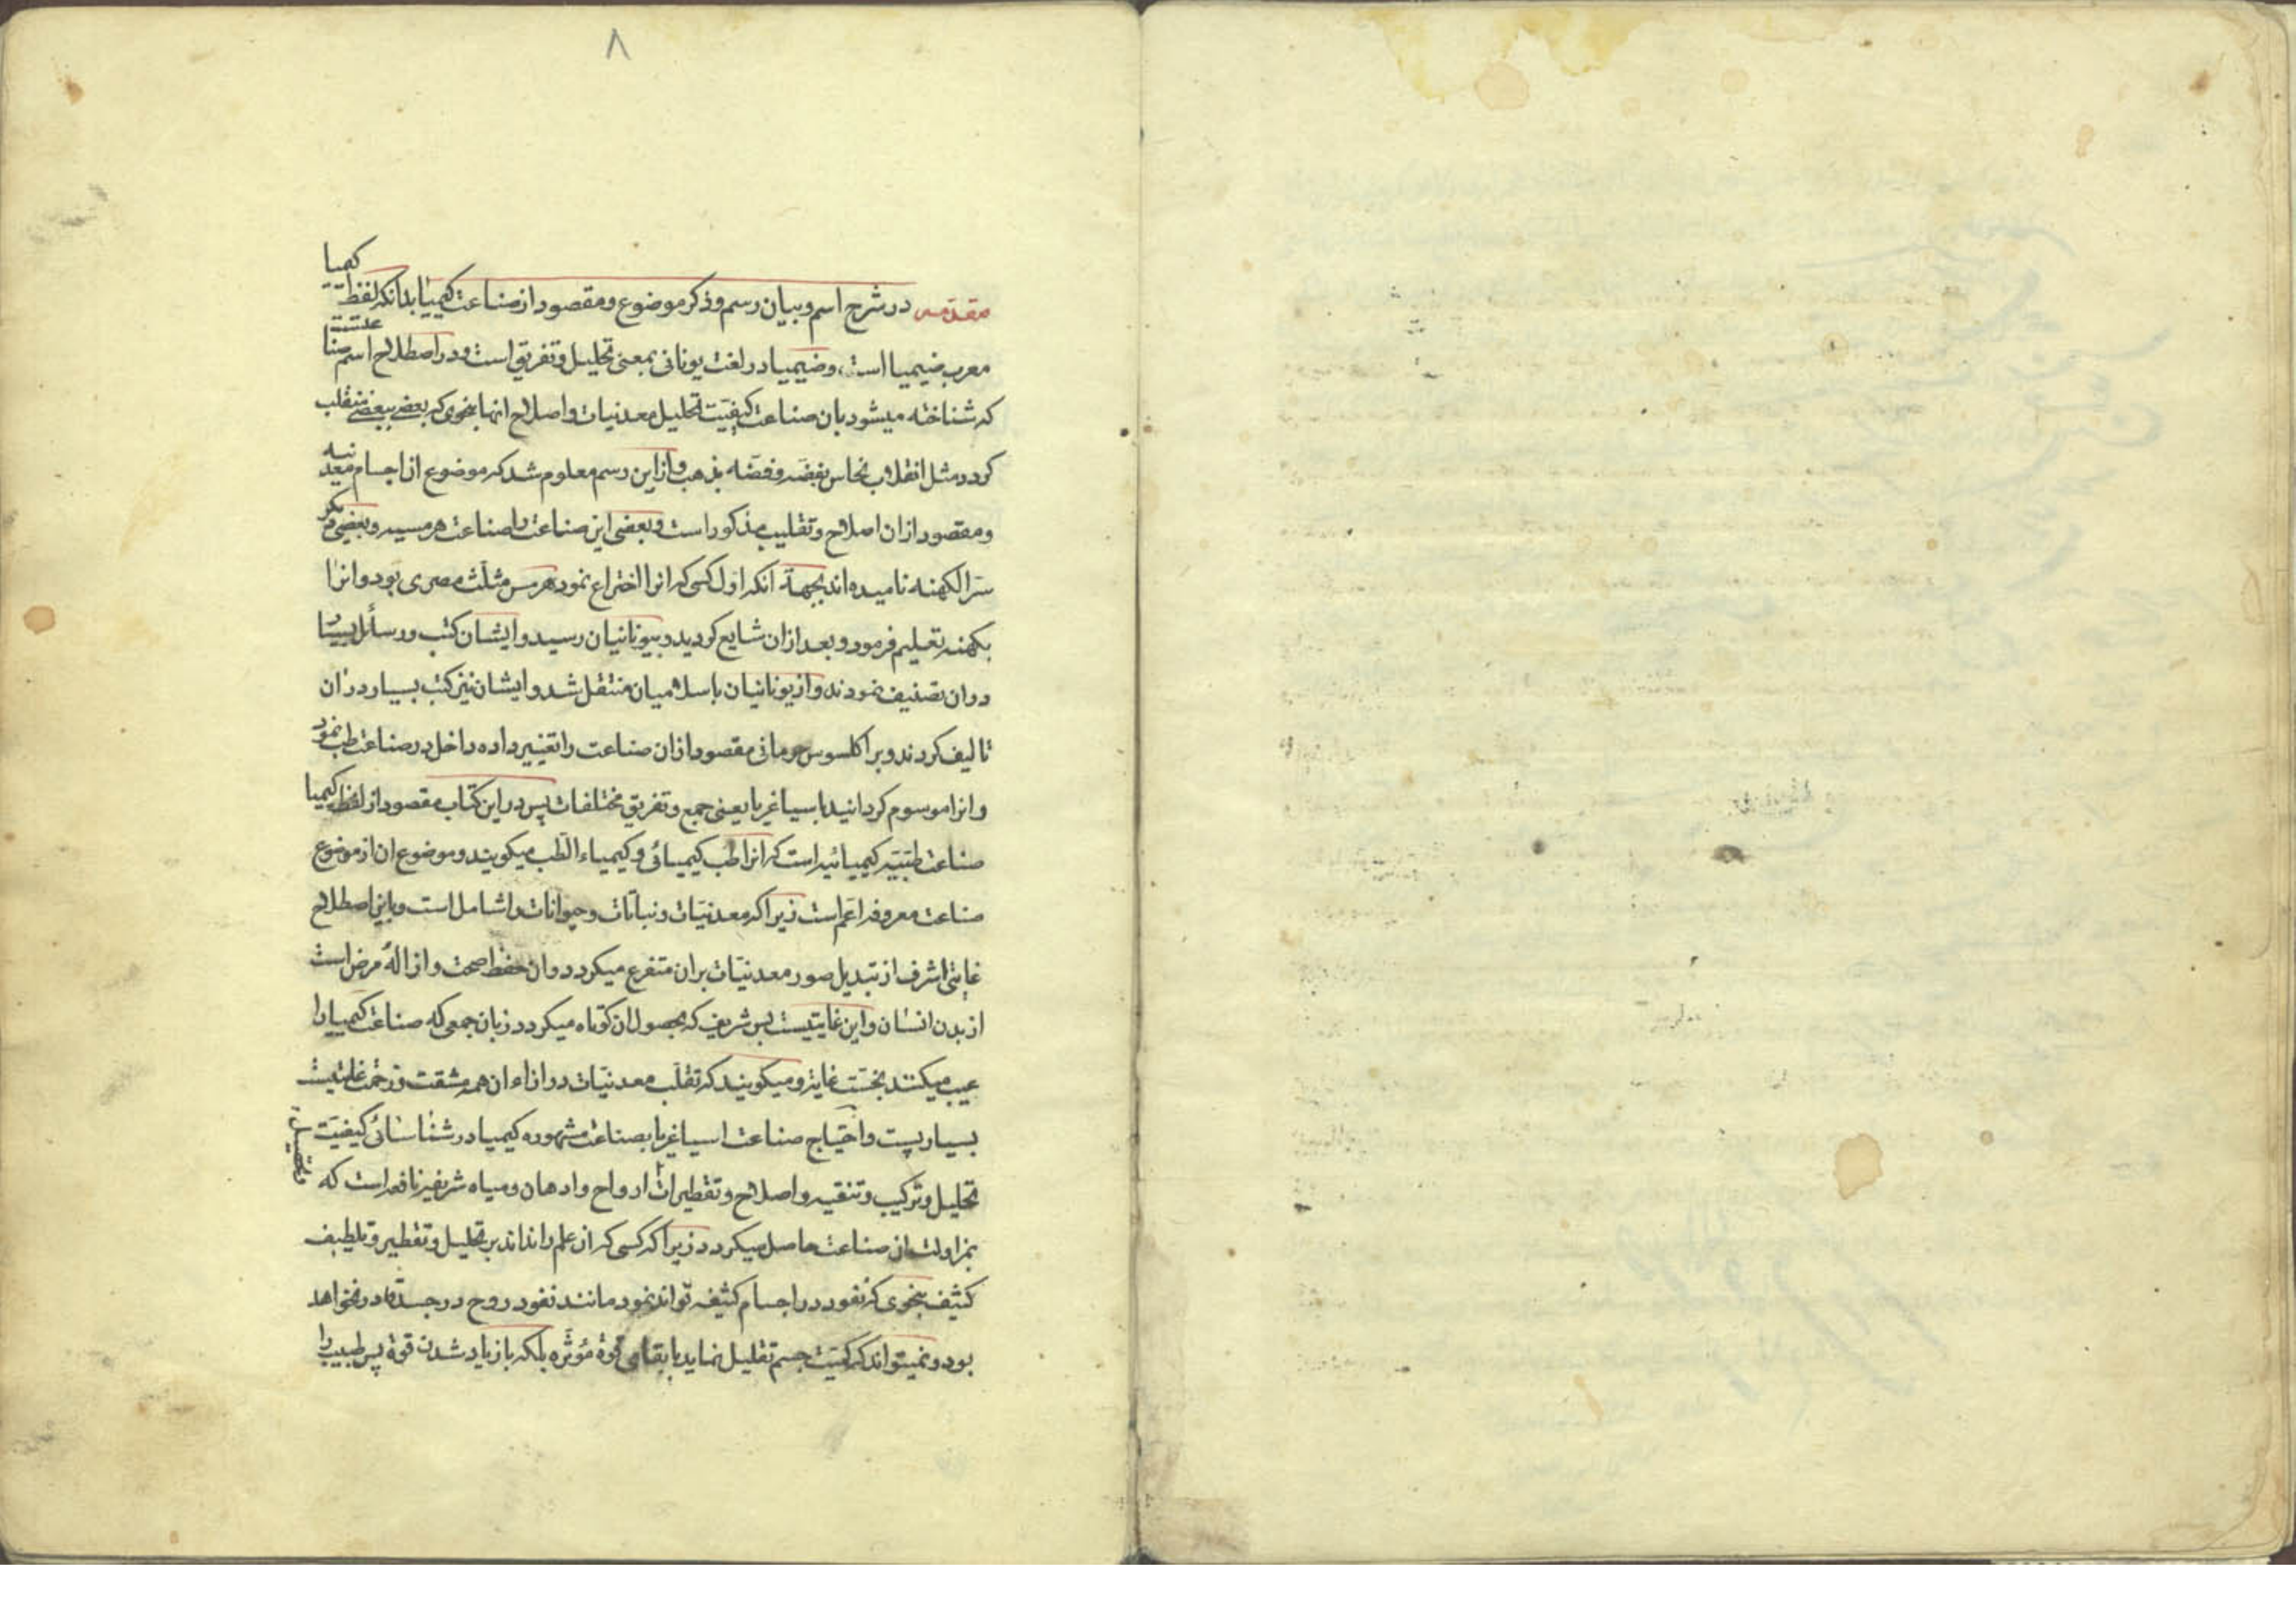 ٨
مقدمه در شرح اسم و بیان رسم و ذکر موضوع و مقصود از صناعت کیمیا بدانکه لفظ کیمیا
معرب ضیمیا است و ضیمیا در لغت یونانی بمعنی تحلیل و تفریق است و در اصطلاح اسم صناعتیست
که شناخته میشود بان صناعت کیفیت تحلیل معدنیات و اصلاح انها بنحوی که بعضی ببعضی منقلب
کردد مثل انقلاب نحاس بفضه و فضه بذهب و از این رسم معلوم شد که موضوع ان اجسام معدنیه
و مقصود از ان اصلاح و تقلیب مذکور است و بعضی این صناعت را صناعت هرمسیه و بعضی دیگر
سر الکهنه نامیده اند بجهة آنکه اول کسی که انرا اختراع نمود هرمس مثلث مصری بود و انرا
بکهنه تعلیم فرمود و بعد از ان شایع کردید و بیونانیان رسید و ایشان کتب و رسائل بسیار
در ان تصنیف نمودند و از یونانیان باسلامیان منتقل شد و ایشان نیز کتب بسیار در ان
تالیف کردند و براکلسوس جرمانی مقصود از ان صناعت را تغییر داده داخل در صناعت طب نمود
و انرا موسوم کردانید باسپاغریا یعنی جمع و تفریق مختلفات پس در این کتاب مقصود از لفظ کیمیا
صناعت طبیه کیمیائیه است که انرا طب کیمیائی و کیمیاء الطب میکویند و موضوع ان از موضوع
صناعت معروفه اعم است زیرا که معدنیات و نباتات و حیوانات را شامل است و باین اصطلاح
غایتی اشرف از تبدیل صور معدنیات بران متفرع میکردد و ان حفظ صحت و ازالهٔ مرض است
از بدن انسان و این غایتیست بس شریف که بحصول ان کوتاه میکردد زبان جمعی که صناعت کیمیا را
عیب میکنند بخست غایة و میکویند که تقلب معدنیات در ازاء ان همه مشقت و زحمت غایتیست
بسیار پست و احتیاج صناعت اسپاغریا بصناعت مشهوره کیمیا در شناسائی کیفیت
تحلیل و ترکیب و تنقیه و اصلاح و تقطیرات ارواح و ادهان و میاه شریفه نافعه است که
بمزاولت ان صناعت حاصل میکردد زیرا که کسی که ان علم را نداند بر تحلیل و تقطیر و تلطیف
کثیف بنحوی که نفوذ در اجسام کثیفه تواند نمود مانند نفوذ روح در جسد قادر نخواهد
بود و نمیتواند که کمیت جسم تقلیل نماید با بقای قوة مؤثره بلکه با زیاد شدن قوة پس طبیب را